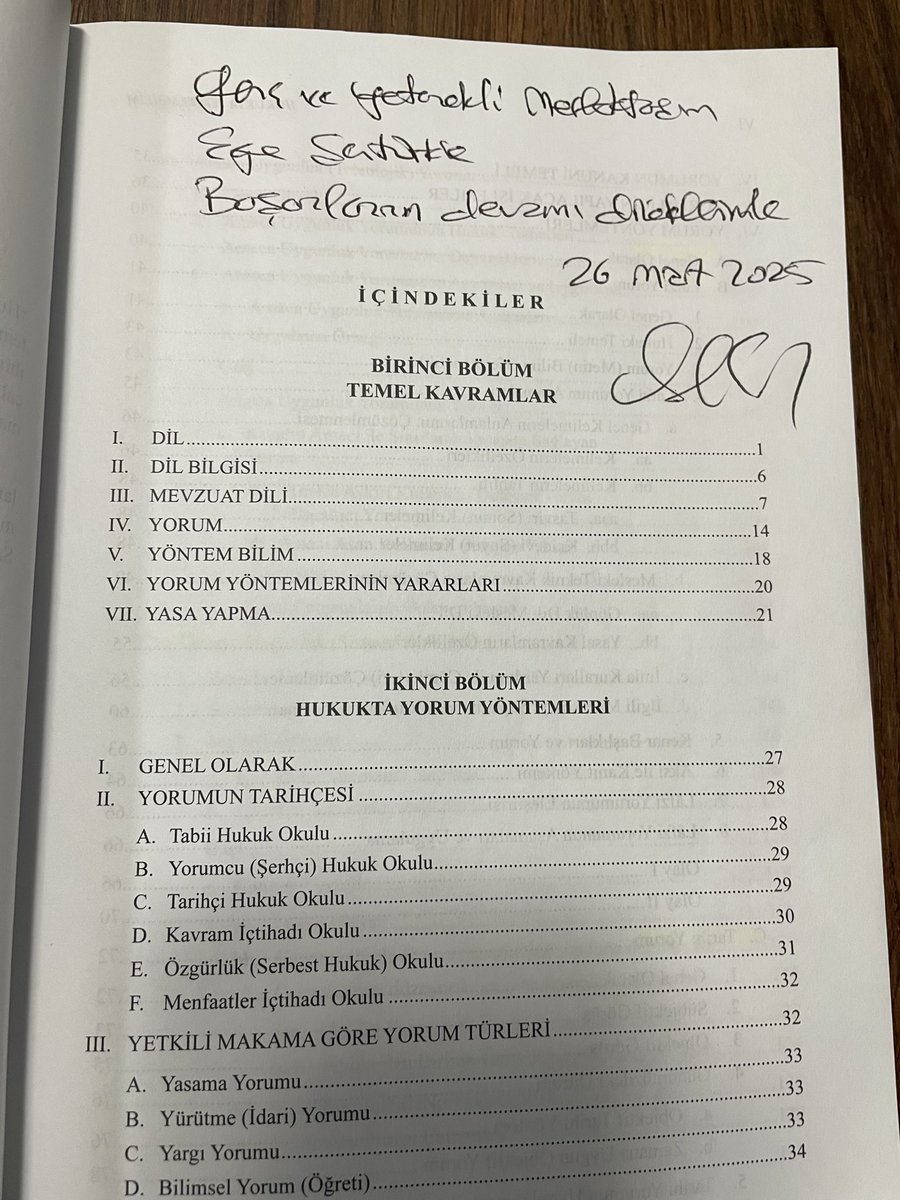 Genç ve yetenekli Meslektaşım
Ege
Başarılarının devamı dileklerimle
26 Mart 2025
İÇİNDEKİLER
BİRİNCİ BÖLÜM
TEMEL KAVRAMLAR
I. DİL 1
II. DİL BİLGİSİ 6
III. MEVZUAT DİLİ 7
IV. YORUM 14
V. YÖNTEM BİLİM 18
VI. YORUM YÖNTEMLERİNİN YARARLARI 20
VII. YASA YAPMA 21
İKİNCİ BÖLÜM
HUKUKTA YORUM YÖNTEMLERİ
I. GENEL OLARAK 27
II. YORUMUN TARİHÇESİ 28
A. Tabii Hukuk Okulu 28
B. Yorumcu (Şerhçi) Hukuk Okulu 29
C. Tarihçi Hukuk Okulu 29
D. Kavram İçtihadı Okulu 30
E. Özgürlük (Serbest Hukuk) Okulu 31
F. Menfaatler İçtihadı Okulu 32
III. YETKİLİ MAKAMA GÖRE YORUM TÜRLERİ 32
A. Yasama Yorumu 33
B. Yürütme (İdari) Yorumu 33
C. Yargı Yorumu 33
D. Bilimsel Yorum (Öğreti) 34